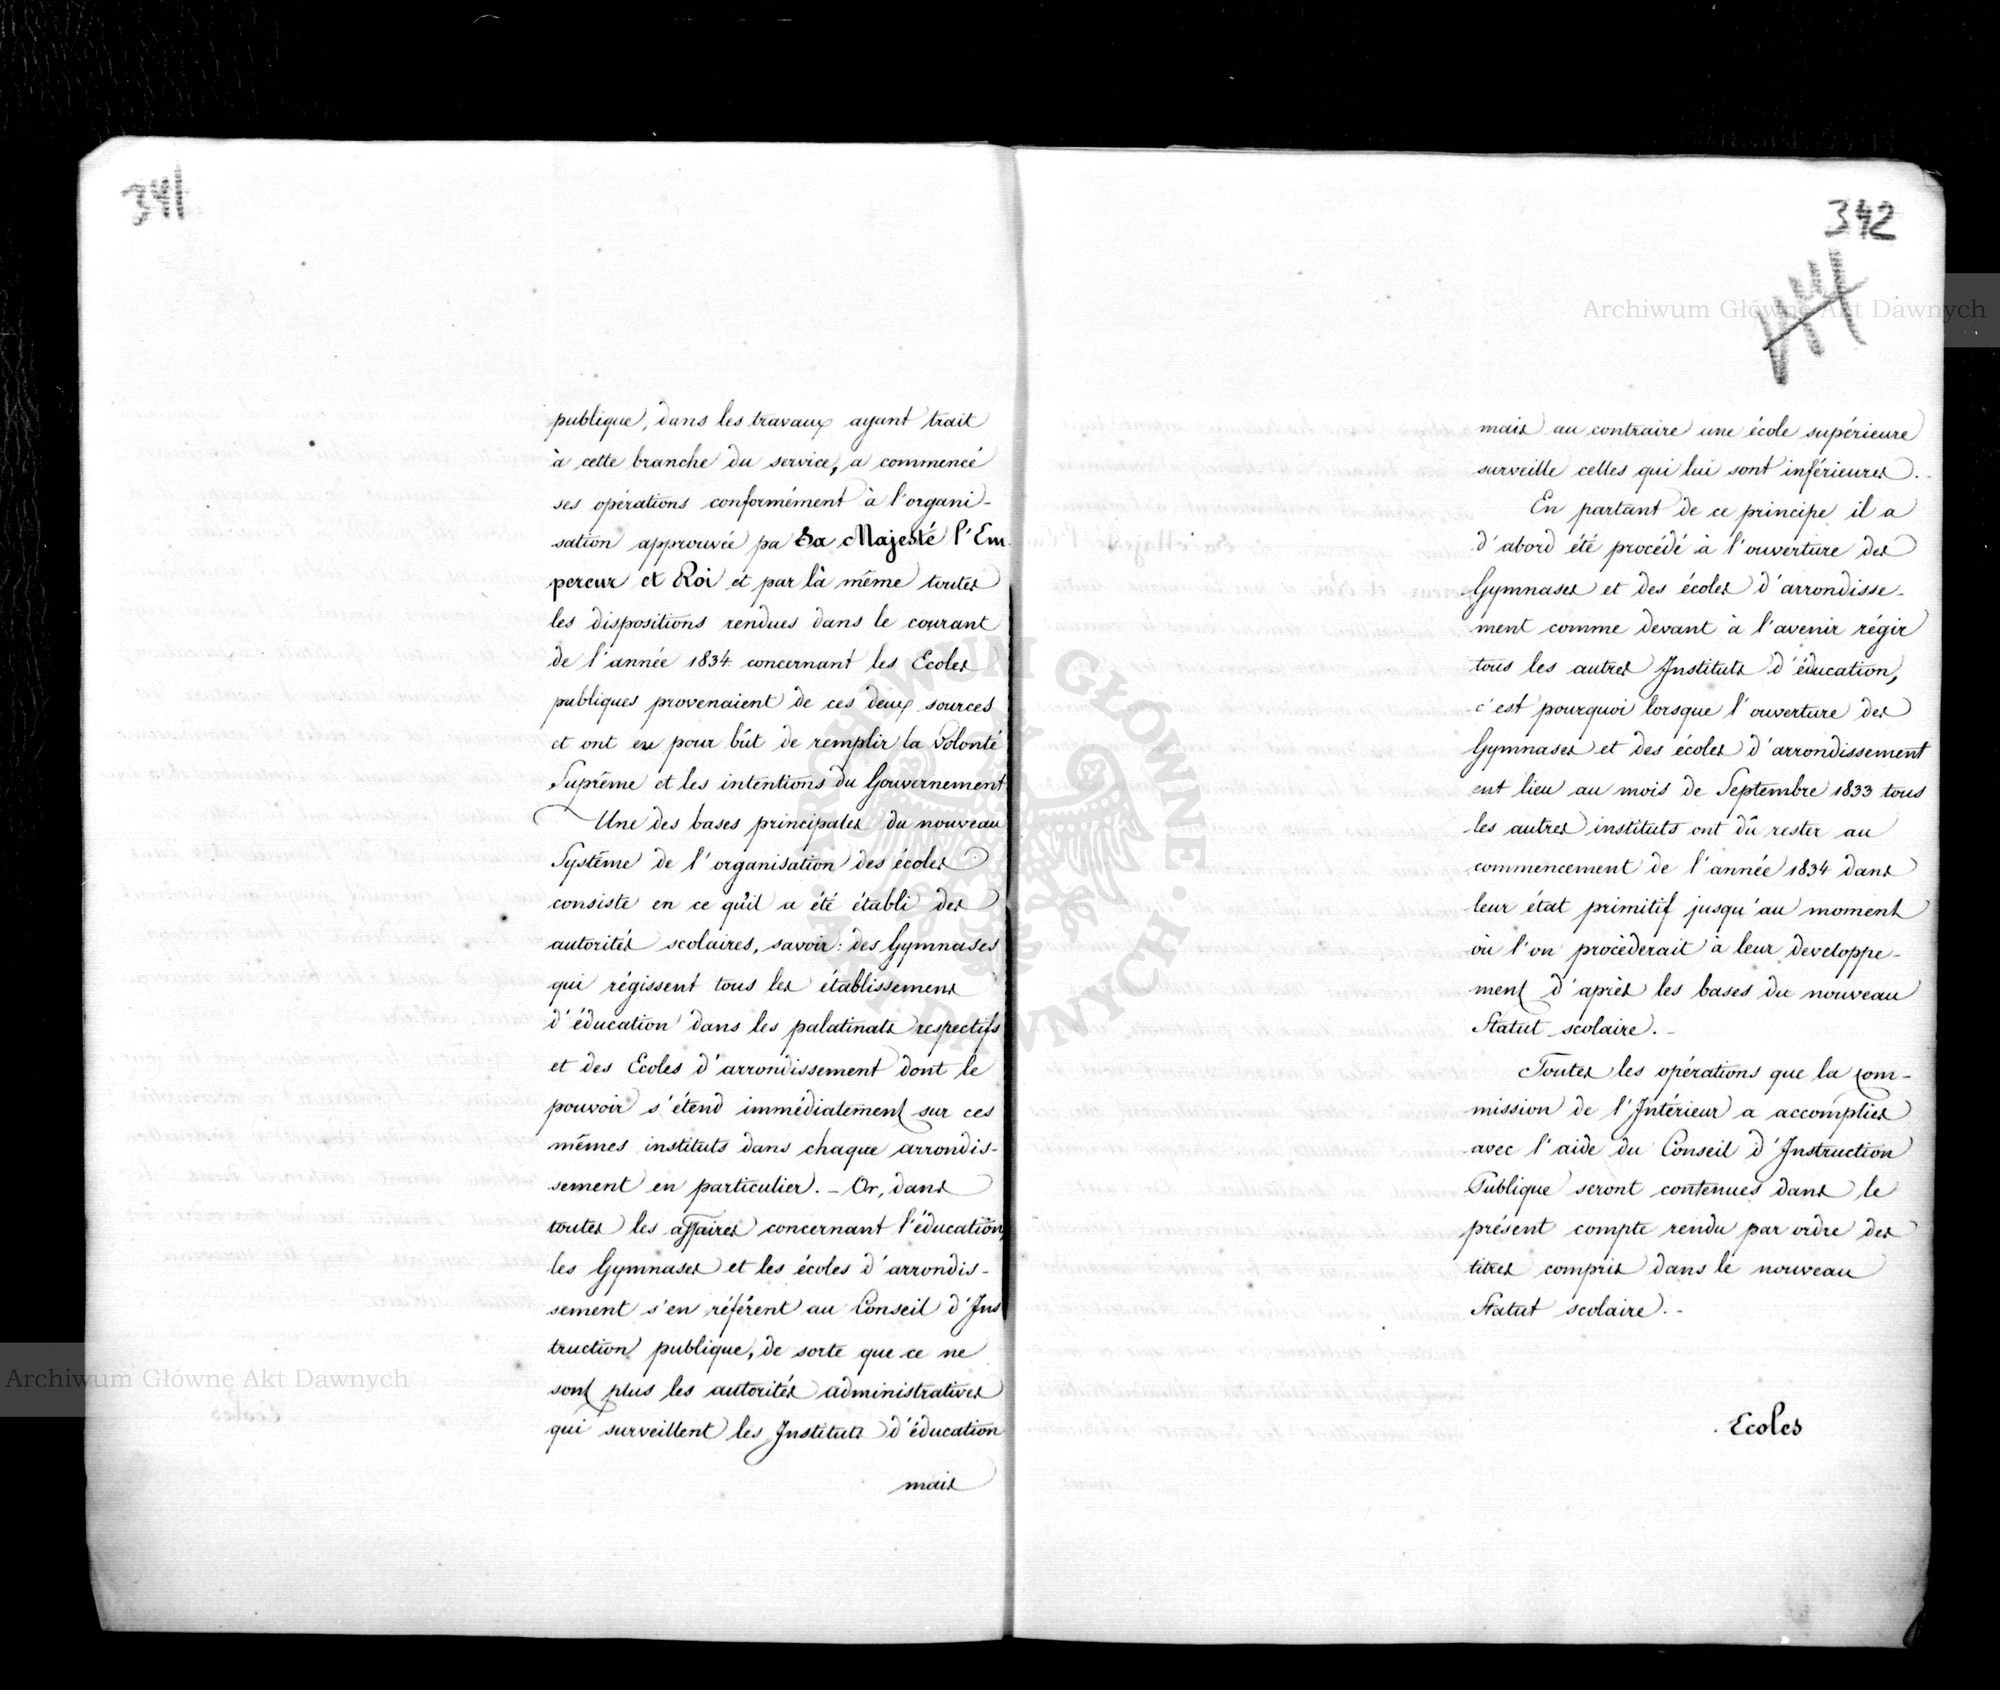 341
publique, dans les travaux ayant trait
à cette branche du service, a commencé
ses opérations conformément à l'organi-
sation approuvée pa Sa Majesté l'Em
pereur et Roi et par là même toutes
les dispositions rendues dans le courant
de l'année 1834 concernant les Ecoles
publiques provenaient de ces deux sources
et ont eu pour bût de remplir la Volonté
Suprême et les intentions du Gouvernement
Une des bases principales du nouveau
Système de l'organisation des écoles
consiste en ce qu'il a été établi des
autorités scolaires, savoir: des Gymnases
qui régissent tous les établissemens
d'éducation dans les palatinats respectifs
et des Ecoles d'arrondissement dont le
pouvoir s'étend immédiatement sur ces
mêmes instituts dans chaque arrondis-
sement en particulier. - Or, dans
toutes les affaires concernant l'éducation,
les Gymnases et les écoles d'arrondis-
sement s'en réfèrent au Conseil d'Ins
truction publique, de sorte que ce ne
sont plus les autorités administratives
qui surveillent les Instituts d'éducation
mais
342
mais au contraire une école supérieure
surveille celles qui lui sont inférieures.
En partant de ce principe il a
d'abord été procédé à l'ouverture des
Gymnases et des écoles d'arrondisse-
ment comme devant à l'avenir régir
tous les autres Instituts d'éducation,
c'est pourquoi lorsque l'ouverture des
Gymnases et des écoles d'arrondissement
eut lieu au mois de Septembre 1833 tous
les autres instituts ont dû rester au
commencement de l'année 1834 dans
leur état primitif jusqu'au moment
où l'on procèderait à leur developpe-
ment d'après les bases du nouveau
Statut scolaire. -
Toutes les opérations que la Com-
mission de l'Intérieur a accomplies
avec l'aide du Conseil d'Instruction
Publique seront contenues dans le
présent compte rendu par ordre des
titres compris dans le nouveau
Statut scolaire. -
Ecoles
Archiwum Główne Akt Dawnych
Archiwum Główne Akt Dawnych
ARCHIWUM GŁÓWNE AKT DAWNYCH